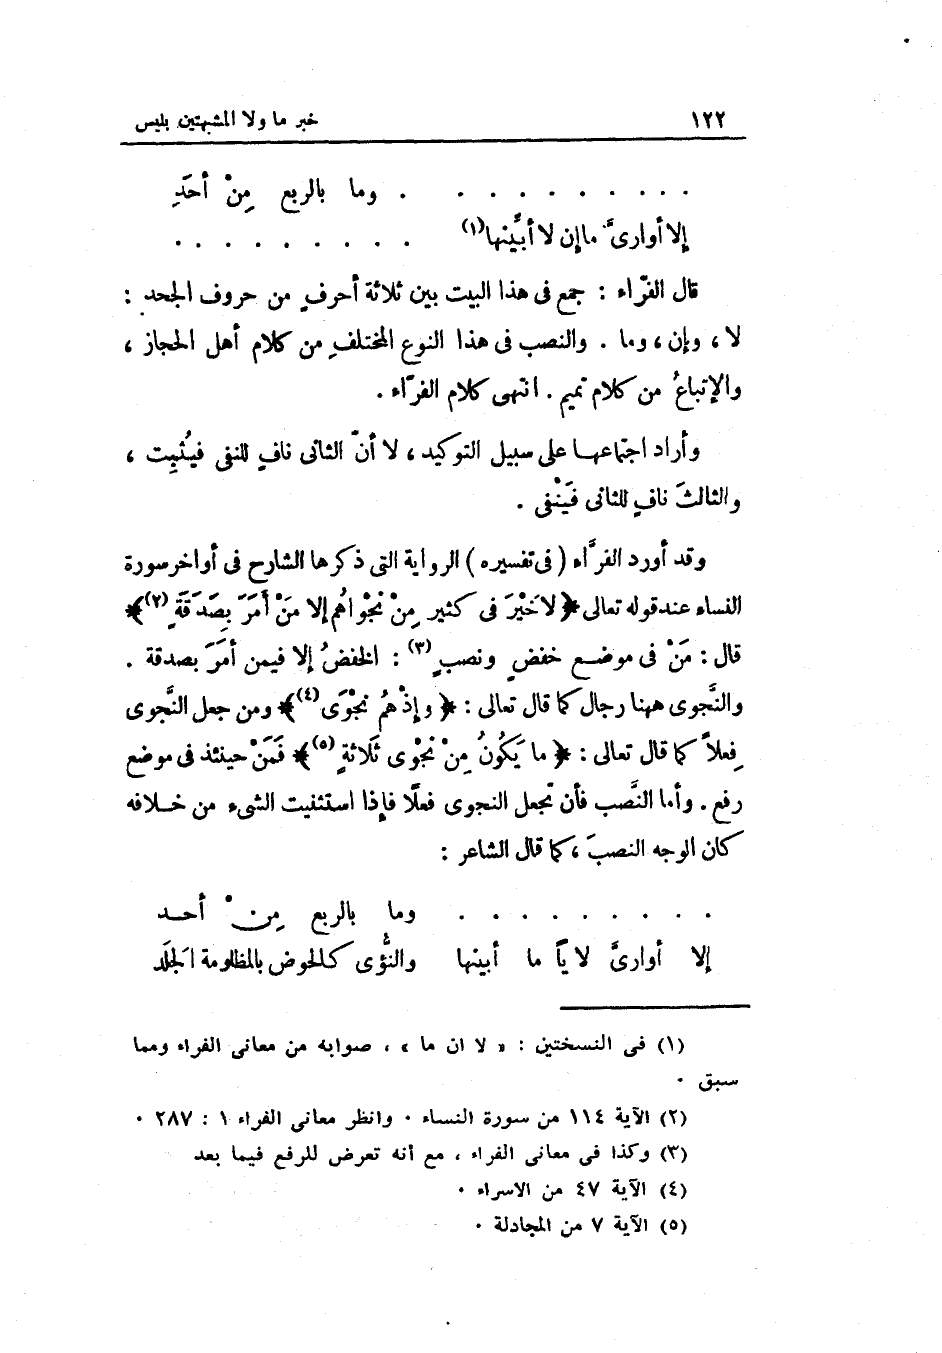 ١٢٢ خبر ما ولا المشبهتين بليس
. . . . . . . . . . وما بالربع مِنْ أحَدِ
إلا أوارىَّ ماإن لا أبيِّنها(١) . . . . . . . . .
قال الفرّاء : جمع فى هذا البيت بين ثلاثة أحرفٍ من حروف الجحد :
لا ، وإن ، وما . والنصب فى هذا النوع المختلفِ من كلام أهل الحجاز ،
والإتباعُ من كلام تميم . انتهى كلام الفرّاء .
وأراد اجتماعهـا على سبيل التوكيد ، لا أنّ الثانى نافٍ للنفى فيُثبِت ،
والثالثَ نافٍ للثانى فَيَنْفى .
وقد أورد الفرَّاء ( فى تفسيره ) الرواية التى ذكرها الشارح فى أواخر سورة
النساء عند قوله تعالى ﴿ لا خَيْرَ فى كثير مِنْ نَجْوَاهُم إلا مَنْ أَمَرَ بِصَدَقَةٍ(٢) ﴾
قال : مَنْ فى موضـع خفضٍ ونصبٍ(٣) : الخفضُ إلا فيمن أمَرَ بصدقة .
والنَّجوى ههنا رجال كما قال تعالى : ﴿ وإذْ هُم نَجْوَى(٤) ﴾ ومن جعل النَّجوى
فِعلاً كما قال تعالى : ﴿ ما يَكُونُ مِنْ نَجْوى ثَلاثةٍ(٥) ﴾ فَمَنْ حينئذ فى موضع
رفع . وأما النَّصب فأن تجعل النجوى فعلًا فإذا استثنيت الشىء من خـلافه
كان الوجه النصبَ ، كما قال الشاعر :
. . . . . . . . . وما بالربع مِنْ أحـد
إلا أوارىَّ لأياً ما أبينها والنُّؤى كالحوض بالمظلومة الجَلَد
(١) فى النسختين : « لا ان ما » ، صوابه من معانى الفراء ومما
سبق ٠
(٢) الآية ١١٤ من سورة النساء ٠ وانظر معانى الفراء ١ : ٢٨٧ ٠
(٣) وكذا فى معانى الفراء ، مع أنه تعرض للرفع فيما بعد
(٤) الآية ٤٧ من الاسراء ٠
(٥) الآية ٧ من المجادلة ٠